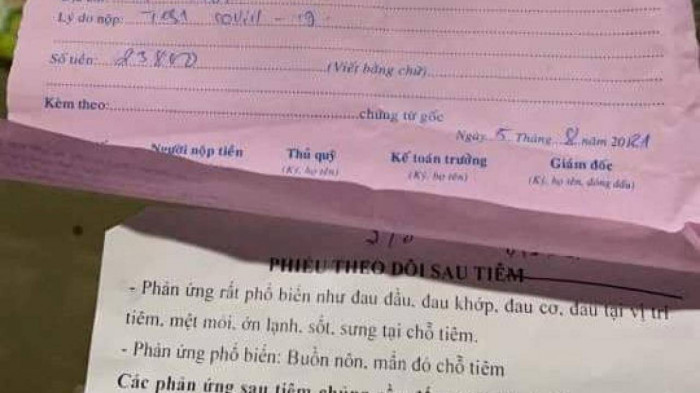 Lý do nộp: Test covid - 19
Số tiền: 23800 (Viết bằng chữ)
Kèm theo: chứng từ gốc
Ngày 5 Tháng 8 năm 2021
Người nộp tiền Thủ quỹ Kế toán trưởng Giám đốc
(Ký, họ tên) (Ký, họ tên) (Ký, họ tên, đóng dấu)
PHIẾU THEO DÕI SAU TIÊM
- Phản ứng rất phổ biến như đau đầu, đau khớp, đau cơ, đau tại vị trí
tiêm, mệt mỏi, ớn lạnh, sốt, sưng tại chỗ tiêm.
- Phản ứng phổ biến: Buồn nôn, mẩn đỏ chỗ tiêm
Các phản ứng sau tiêm